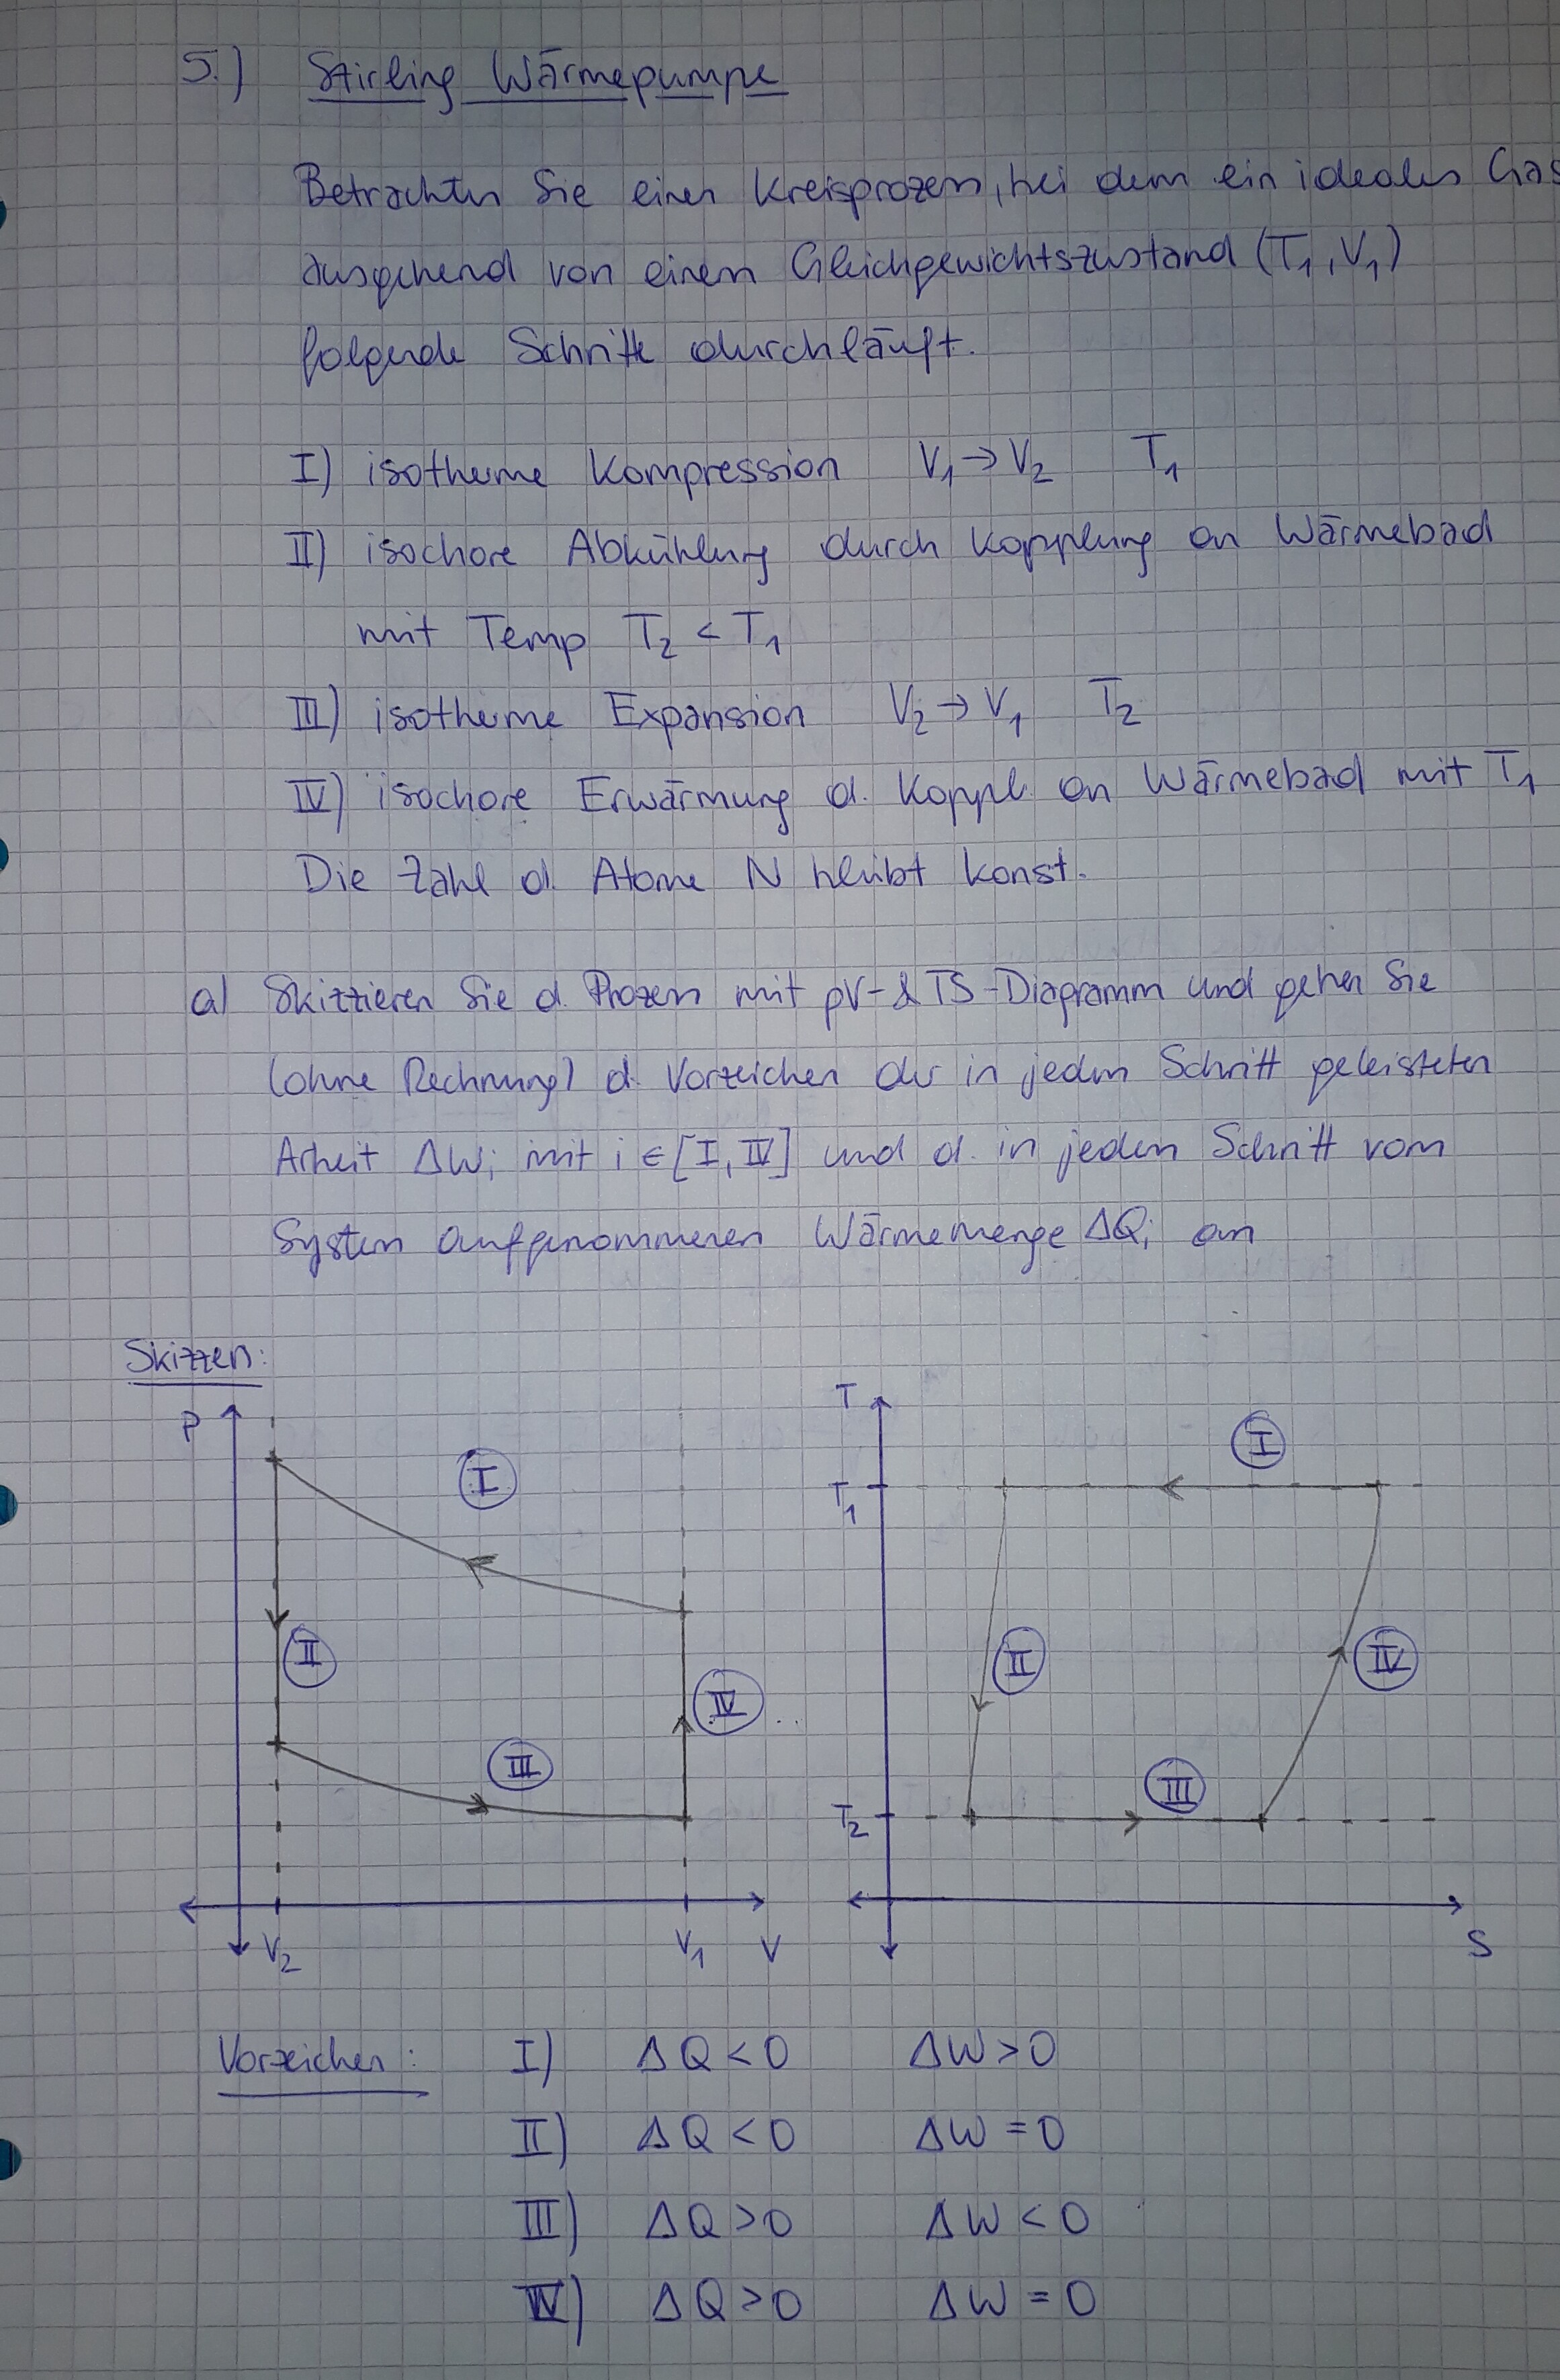 5.) Stirling Wärmepumpe
Betrachten Sie einen Kreisprozess, bei dem ein ideales Gas
ausgehend von einem Gleichgewichtszustand (T₁, V₁)
folgende Schritte durchläuft.
I) isotherme Kompression V₁ → V₂ T₁
II) isochore Abkühlung durch Kopplung an Wärmebad
mit Temp T₂ < T₁
III) isotherme Expansion V₂ → V₁ T₂
IV) isochore Erwärmung d. Koppl. an Wärmebad mit T₁
Die Zahl d. Atome N bleibt konst.
a) Skizzieren Sie d. Prozess mit pV- & TS-Diagramm und geben Sie
(ohne Rechnung) d. Vorzeichen der in jedem Schritt geleisteten
Arbeit ΔWᵢ mit i ∈ [I, IV] und d. in jedem Schritt vom
System aufgenommenen Wärmemenge ΔQᵢ an
Skizzen:
P
I
II
III
IV
V₂
V₁
V
T
T₁
I
II
IV
III
T₂
S
Vorzeichen: I) ΔQ < 0 ΔW > 0
II) ΔQ < 0 ΔW = 0
III) ΔQ > 0 ΔW < 0
IV) ΔQ > 0 ΔW = 0